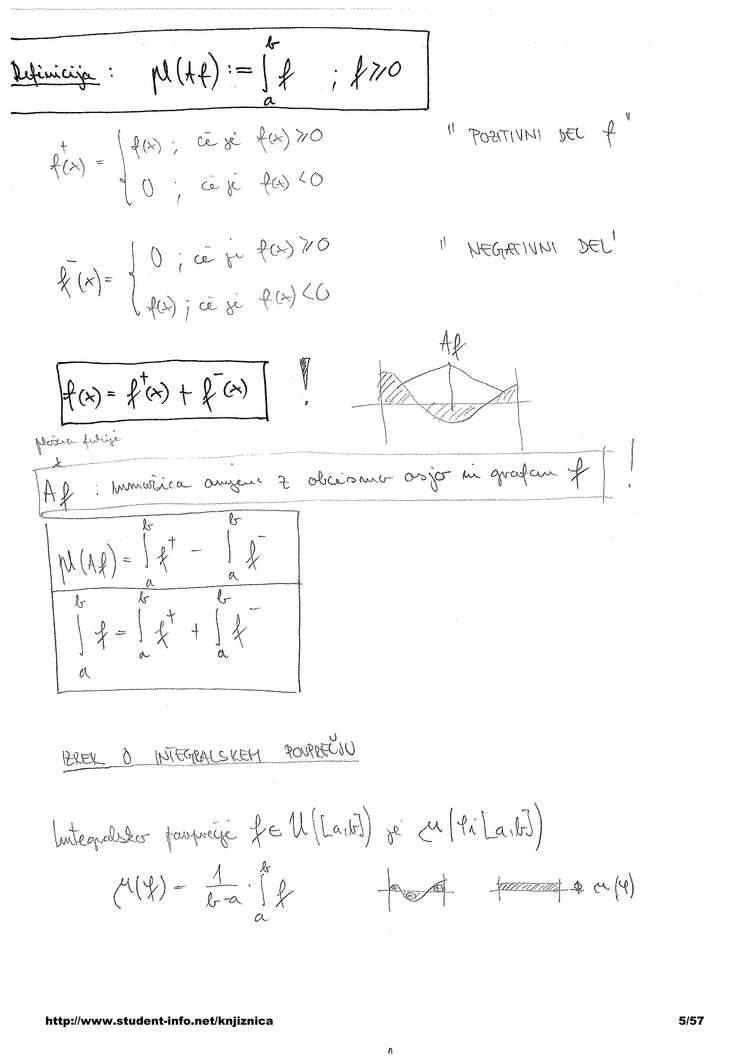 Definicija : μ(Af) := ∫_a^b f ; f ≥ 0
f⁺(x) = { f(x) ; če je f(x) ≥ 0 " POZITIVNI DEL f "
0 ; če je f(x) < 0
f⁻(x) = { 0 ; če je f(x) ≥ 0 " NEGATIVNI DEL '
f(x) ; če je f(x) < 0
Af
f(x) = f⁺(x) + f⁻(x) !
Af : množica omejena z abscisno osjo in grafom f !
μ(Af) = ∫_a^b f⁺ - ∫_a^b f⁻
∫_a^b f = ∫_a^b f⁺ + ∫_a^b f⁻
IZREK O INTEGRALSKEM POVPREČJU
Integralsko povprečje f ∈ U([a,b]) je μ(f; [a,b])
μ(f) = 1/(b-a) · ∫_a^b f μ(f)
http://www.student-info.net/knjiznica 5/57